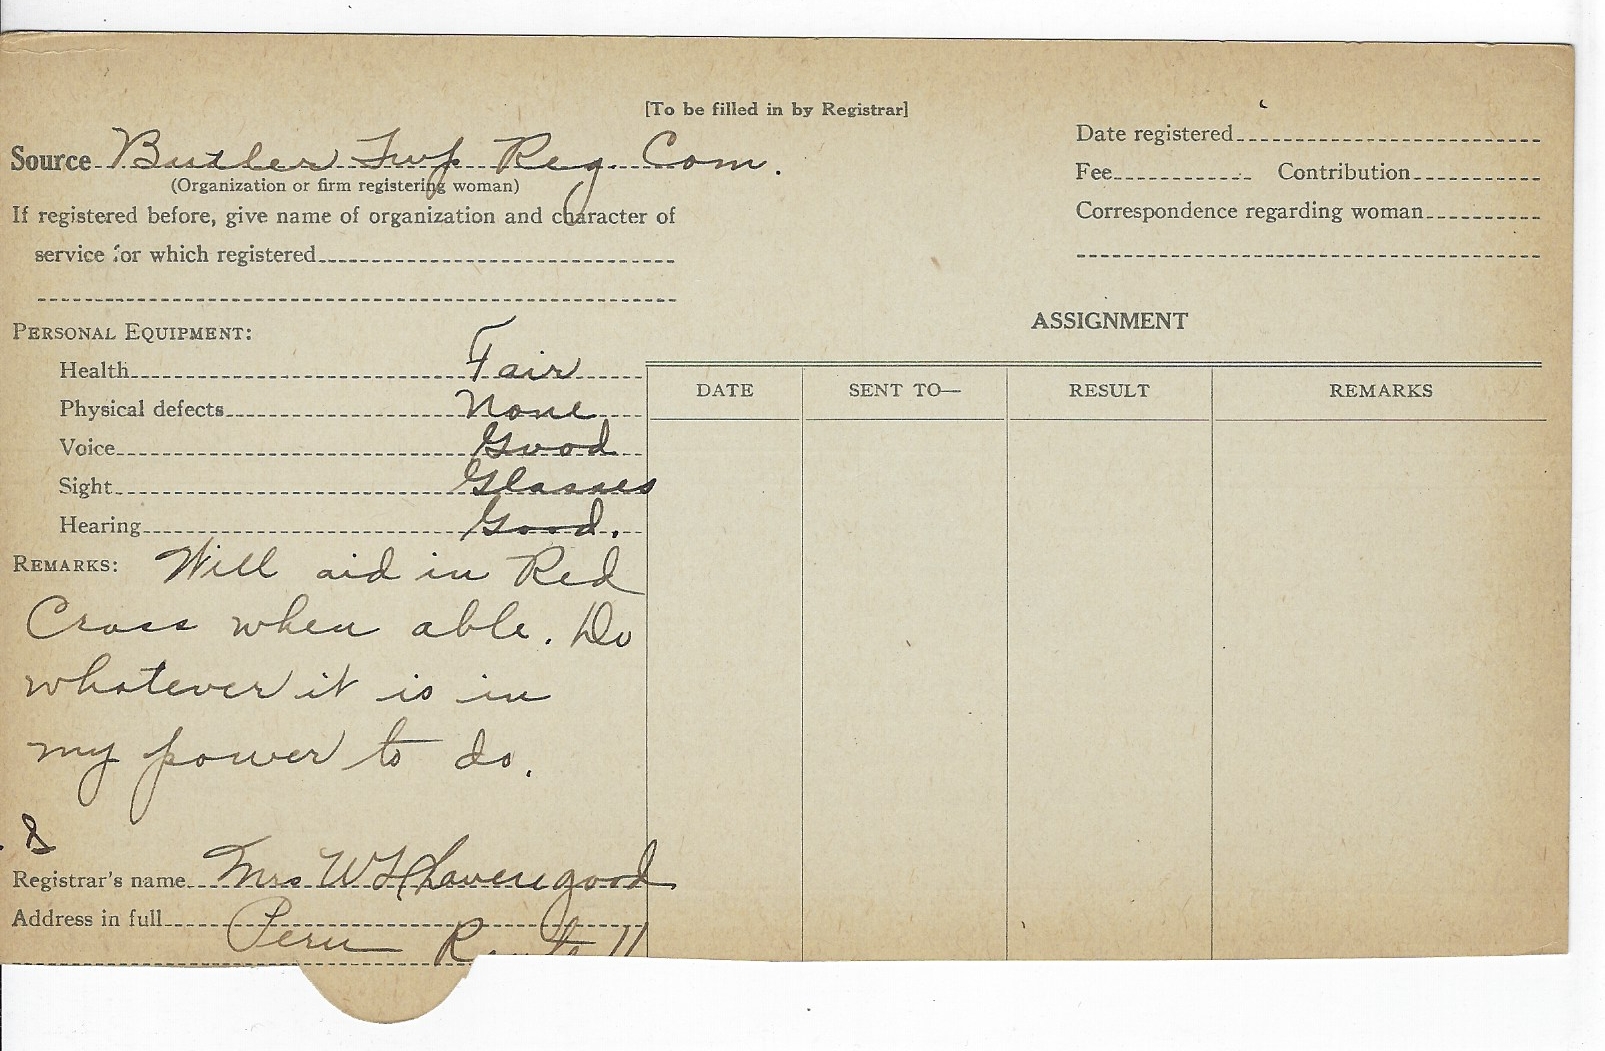 [To be filled in by Registrar]
Source Butler Twp Reg. Com.
(Organization or firm registering woman)
If registered before, give name of organization and character of
service for which registered
Date registered
Fee Contribution
Correspondence regarding woman
PERSONAL EQUIPMENT:
Health Fair
Physical defects None
Voice Good
Sight Glasses
Hearing Good.
REMARKS: Will aid in Red
Cross when able. Do
whatever it is in
my power to do.
Registrar's name Mrs W
Address in full Peru Route 11
ASSIGNMENT
DATE SENT TO— RESULT REMARKS